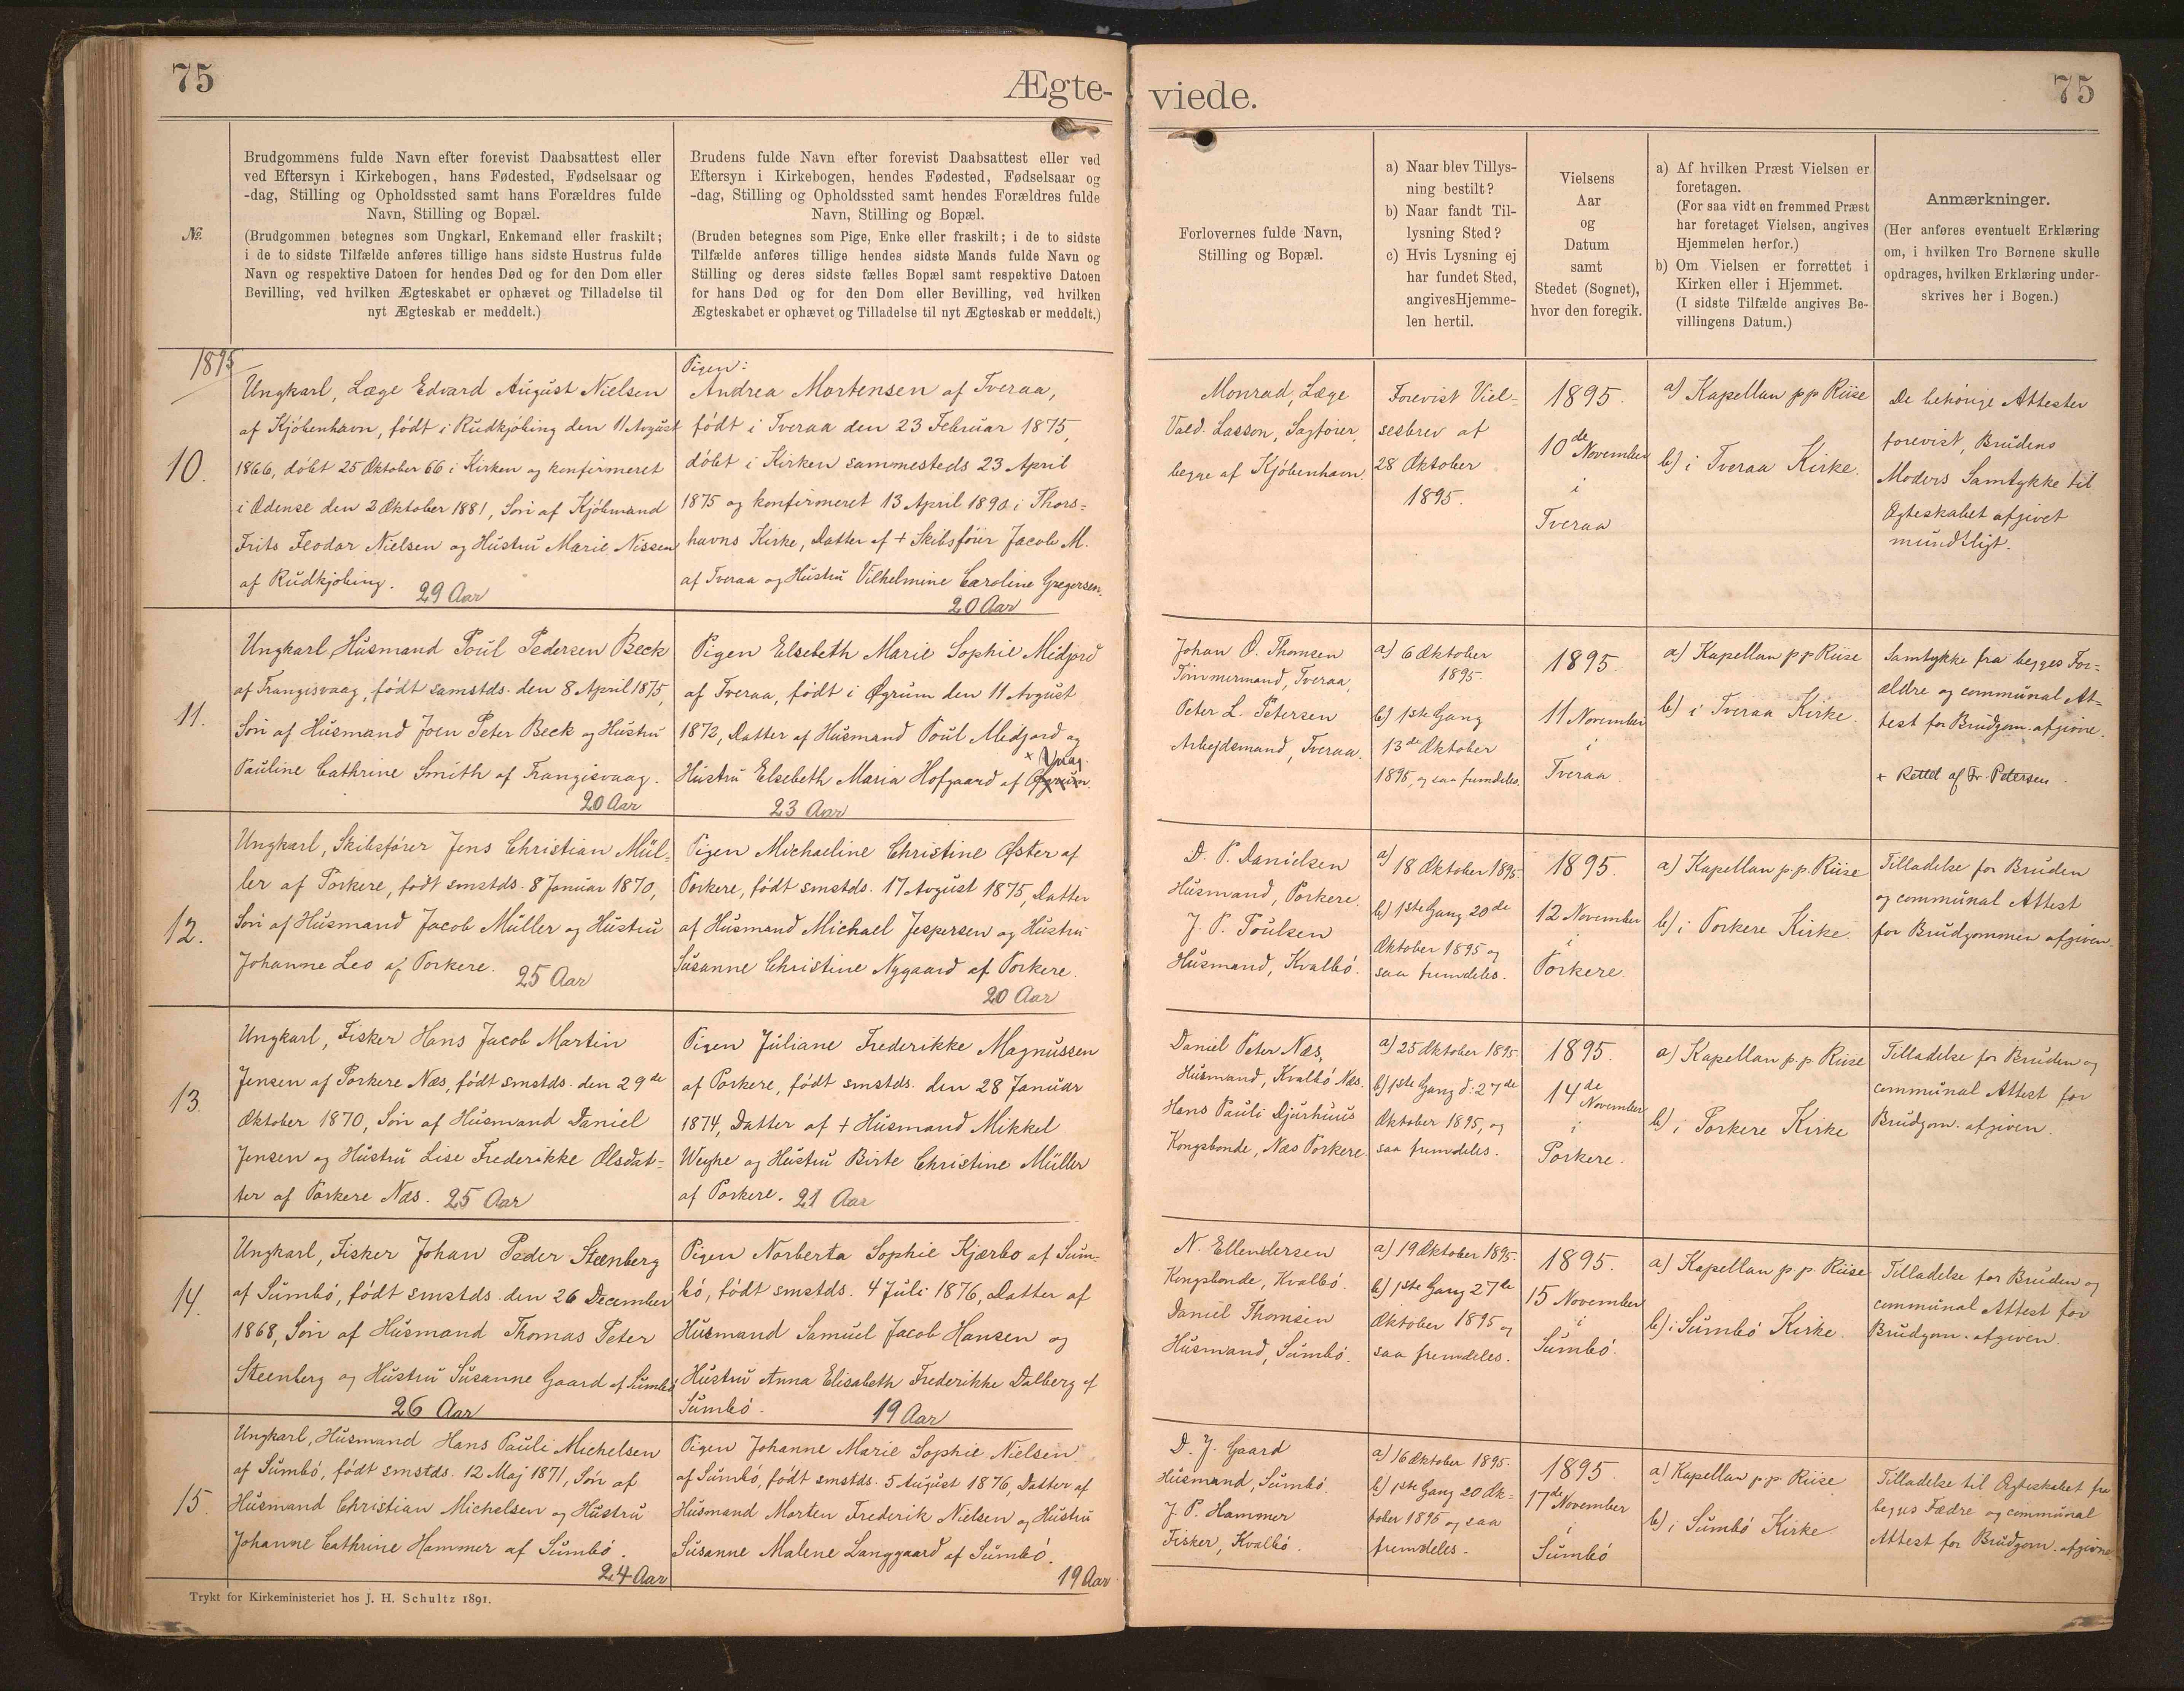 75
Ægte-
viede.
75
№.
Brudgommens fulde Navn efter forevist Daabsattest eller
ved Eftersyn i Kirkebogen, hans Fødested, Fødselsaar og
-dag, Stilling og Opholdssted samt hans Forældres fulde
Navn, Stilling og Bopæl.
(Brudgommen betegnes som Ungkarl, Enkemand eller fraskilt;
i de to sidste Tilfælde anføres tillige hans sidste Hustrus fulde
Navn og respektive Datoen for hendes Død og for den Dom eller
Bevilling, ved hvilken Ægteskabet er ophævet og Tilladelse til
nyt Ægteskab er meddelt.)
Brudens fulde Navn efter forevist Daabsattest eller ved
Eftersyn i Kirkebogen, hendes Fødested, Fødselsaar og
-dag, Stilling og Opholdssted samt hendes Forældres fulde
Navn, Stilling og Bopæl.
(Bruden betegnes som Pige, Enke eller fraskilt; i de to sidste
Tilfælde anføres tillige hendes sidste Mands fulde Navn og
Stilling og deres sidste fælles Bopæl samt respektive Datoen
for hans Død og for den Dom eller Bevilling, ved hvilken
Ægteskabet er ophævet og Tilladelse til nyt Ægteskab er meddelt.)
Forlovernes fulde Navn,
Stilling og Bopæl.
a) Naar blev Tillys-
ning bestilt?
b) Naar fandt Til-
lysning Sted?
c) Hvis Lysning ej
har fundet Sted,
angivesHjemme-
len hertil.
Vielsens
Aar
og
Datum
samt
Stedet (Sognet),
hvor den foregik.
a) Af hvilken Præst Vielsen er
foretagen.
(For saa vidt en fremmed Præst
har foretaget Vielsen, angives
Hjemmelen herfor.)
b) Om Vielsen er forrettet i
Kirken eller i Hjemmet.
(I sidste Tilfælde angives Be-
villingens Datum.)
Anmærkninger.
(Her anføres eventuelt Erklæring
om, i hvilken Tro Børnene skulle
opdrages, hvilken Erklæring under-
skrives her i Bogen.)
1895
10.
Ungkarl, Læge Edvard August Nielsen
af Kjöbenhavn, födt i Rudkjöbing den 11 Avgust
1866, döbt 25 Oktober 66 i Kirken og konfirmeret
i Odense den 2 Oktober 1881, Sön af Kjöbmand
Frits Feodar Nielsen og Hustru Marie Nissen
af Rudkjöbing. 29 Aar
Pigen:
Andrea Mortensen af Tveraa,
födt i Tveraa den 23 Februar 1875,
döbt i Kirken sammesteds 23 April
1875 og konfirmeret 13 April 1890 i Thors=
havns Kirke, Datter af + Skibsförer Jacob M.
af Tveraa og Hustru Vilhelmine Caroline Gregersen.
20 Aar
Monrad, Læge
Vald. Lasson, Sagförer,
begge af Kjöbenhavn.
Forevist Viel-
sesbrev af
28 Oktober
1895.
1895.
10de November
i
Tveraa
a) Kapellan p p Riise
b) i Tveraa Kirke.
De behörige Attester
forevist, Brudens
Moders Samtykke til
Ægteskabet afgivet
mundtligt.
11.
Ungkarl, Husmand Poul Pedersen Beck
af Frangisvaag, födt samstds. den 8 April 1875,
Sön af Husmand Joen Peter Beck og Hustru
Pauline Cathrine Smith af Frangisvaag.
20 Aar
Pigen Elsebeth Marie Sophie Midjord
af Tveraa, födt i Øgrum den 11 Avgust
1872, Datter af Husmand Poul Midjord og
+ Vaag.
Hustru Elsebeth Maria Hofgaard af Øgrum.
23 Aar
Johan O. Thomsen
Tömmermand, Tveraa,
Peter L. Petersen
Arbejdsmand, Tveraa.
a) 6 Oktober
1895
b) 1ste Gang
13de Oktober
1895, og saa fremdeles.
1895.
11 November
i
Tveraa.
a) Kapellan p p Riise
b) i Tveraa Kirke.
Samtykke fra begges For=
ældre og communal At=
test for Brudgom. afgivne.
+ Rettet af Fr. Petersen.
12.
Ungkarl, Skibsförer Jens Christian Mül=
ler af Porkere, födt smstds. 8 Januar 1870,
Sön af Husmand Jacob Müller og Hustru
Johanne Leo af Porkere. 25 Aar
Pigen Michaeline Christine Øster af
Porkere, födt smstds. 17 Avgust 1875, Datter
af Husmand Michael Jespersen og Hustru
Susanne Christine Nygaard af Porkere.
20 Aar
D. P. Danielsen
Husmand, Porkere.
J. P. Poulsen
Husmand, Kvalbö.
a) 18 Oktober 1895
b) 1ste Gang 20de
Oktober 1895 og
saa fremdeles.
1895.
12 November
i
Porkere.
a) Kapellan p.p. Riise
b) i Porkere Kirke.
Tilladelse for Bruden
og communal Attest
for Brudgommen afgiven.
13.
Ungkarl, Fisker Hans Jacob Martin
Jensen af Porkere Næs, födt smstds. den 29de
Oktober 1870, Sön af Husmand Daniel
Jensen og Hustru Lise Frederikke Olsdat-
ter af Porkere Næs. 25 Aar
Pigen Juliane Frederikke Magnussen
af Porkere, födt smstds. den 28 Januar
1874, Datter af + Husmand Mikkel
Weyhe og Hustru Birte Christine Müller
af Porkere. 21 Aar
Daniel Peter Næs,
Husmand, Kvalbö Næs.
Hans Pauli Djurhuus
Kongsbonde, Næs Porkere
a) 25 Oktober 1895.
b) 1ste Gang d. 27de
Oktober 1895, og
saa fremdeles.
1895.
14de November
i
Porkere.
a) Kapellan p. p Riise
b) i Porkere Kirke
Tilladelse for Bruden og
communal Attest for
Brudgom. afgiven.
14.
Ungkarl, Fisker Johan Peder Steenberg
af Sumbö, födt smstds. den 26 December
1868, Sön af Husmand Thomas Peter
Steenberg og Hustru Susanne Gaard af Sumbö
26 Aar
Pigen Norberta Sophie Kjærbo af Sum-
bö, födt smstds. 4 Juli 1876, Datter af
Husmand Samuel Jacob Hansen og
Hustru Anna Elisabeth Frederikke Dalberg af
Sumbö. 19 Aar
N. Ellendersen
Kongsbonde, Kvalbö.
Daniel Thomsen
Husmand, Sumbö.
a) 19 Oktober 1895.
b) 1ste Gang 27de
Oktober 1895 og
saa fremdeles.
1895.
15 November
i
Sumbö.
a) Kapellan p. p. Riise
b) i Sumbö Kirke.
Tilladelse for Bruden og
communal Attest for
Brudgom. afgiven.
15.
Ungkarl, Husmand Hans Pauli Michelsen
af Sumbö, födt smstds. 12 Maj 1871, Sön af
Husmand Christian Michelsen og Hustru
Johanne Cathrine Hammer af Sumbö.
24 Aar
Pigen Johanne Marie Sophie Nielsen
af Sumbö, födt smstds. 5 August 1876, Datter af
Husmand Morten Frederik Nielsen og Hustru
Susanne Malene Langgaard af Sumbö.
19 Aar
D. J. Gaard
Husmand, Sumbö.
J. P. Hammer
Fisker, Kvalbö.
a) 16 Oktober 1895.
b) 1ste Gang 20 Ok-
tober 1895 og saa
fremdeles.
1895
17de November
i
Sumbö
a) Kapellan p.p. Riise
b) i Sumbö Kirke
Tilladelse til Ægteskabet fra
begges Fædre og communal
Attest for Brudgom. afgivne
Trykt for Kirkeministeriet hos J. H. Schultz 1891.